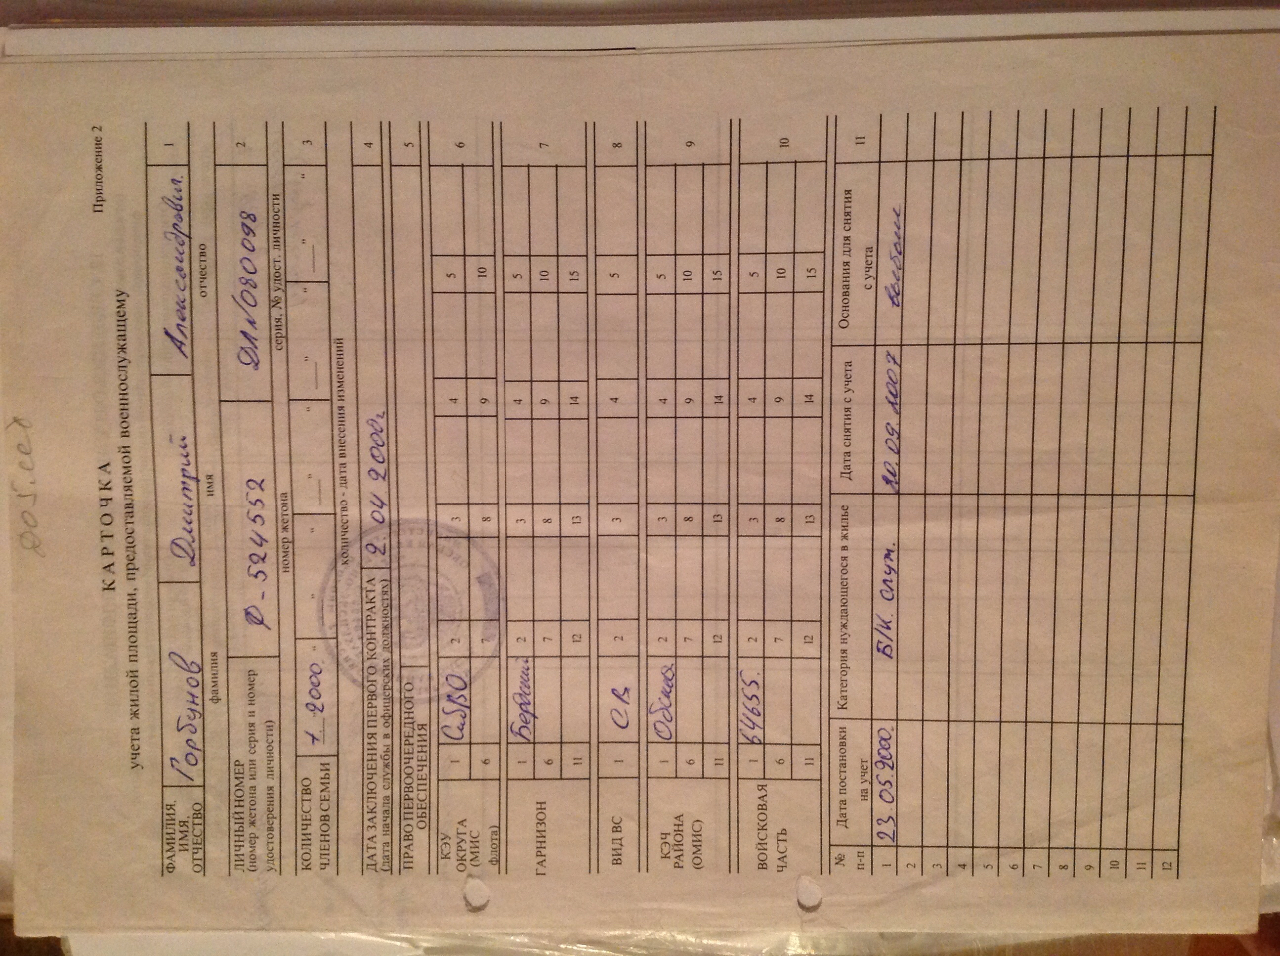 Приложение 2
КАРТОЧКА
учета жилой площади, предоставляемой военнослужащему
ФАМИЛИЯ, ИМЯ, ОТЧЕСТВО Горбунов Дмитрий Александрович 1
фамилия имя отчество
ЛИЧНЫЙ НОМЕР Ф-524552 ДЛ N080098 2
(номер жетона или серия и номер удостоверения личности) номер жетона серия, № удост. личности
КОЛИЧЕСТВО ЧЛЕНОВ СЕМЬИ 2000 " " " " " " 3
количество - дата внесения изменений
ДАТА ЗАКЛЮЧЕНИЯ ПЕРВОГО КОНТРАКТА 2. 04 2000г 4
(дата начала службы в офицерских должностях)
ПРАВО ПЕРВООЧЕРЕДНОГО ОБЕСПЕЧЕНИЯ 5
КЭУ ОКРУГА (МИС флота) 1 СибВО 2 3 4 5 6
6 7 8 9 10
ГАРНИЗОН 1 Бердский 2 3 4 5 7
6 7 8 9 10
11 12 13 14 15
ВИД ВС 1 СВ 2 3 4 5 8
КЭЧ РАЙОНА (ОМИС) 1 Обская 2 3 4 5 9
6 7 8 9 10
11 12 13 14 15
ВОЙСКОВАЯ ЧАСТЬ 1 64655. 2 3 4 5 10
6 7 8 9 10
11 12 13 14 15
№ п-п Дата постановки на учет Категория нуждающегося в жилье Дата снятия с учета Основания для снятия с учета 11
1 23.05.2000. В/К. служ. 20.09.2007
2
3
4
5
6
7
8
9
10
11
12